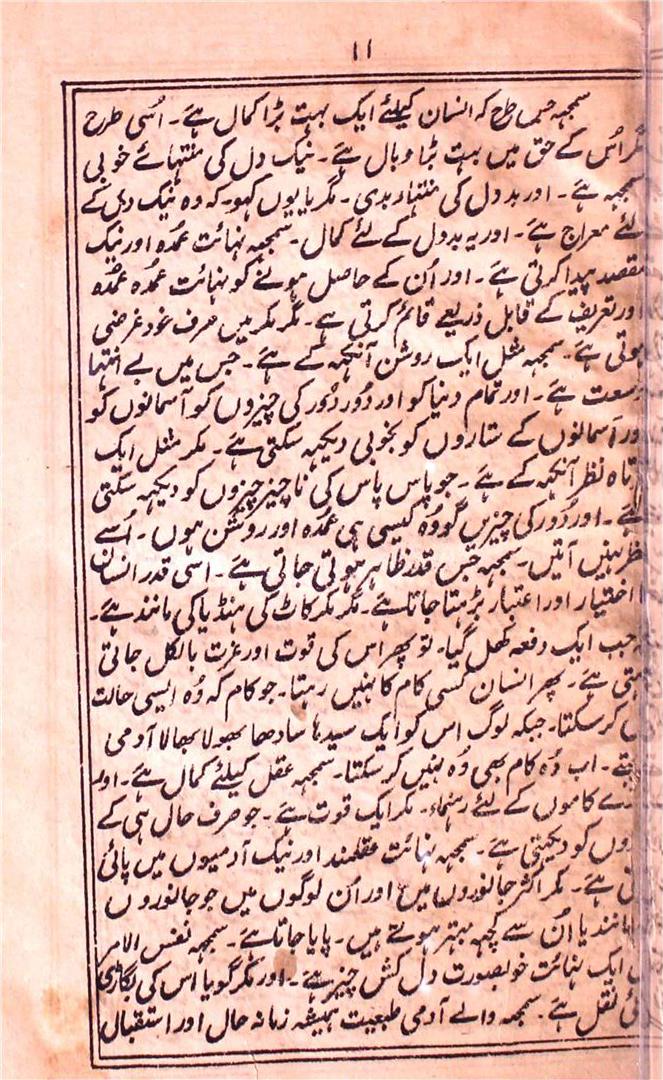 ۱۱
سمجہہ جس طرح کہ انسان کیلئے ایک بہت بڑا کمال ہے۔ اُسی طرح
مکر اُس کے حق میں بہت بڑا وبال ہے۔ نیک دل کی منتہائے خوبی
سمجہہ ہے۔ اور بد دل کی منتہاء بدی۔ مگر یا یوں کہو۔ کہ وہ نیک دل کے
لئے معراج ہے۔ اور یہ بد دل کے لئے کمال۔ سمجہہ نہائت عمدہ اور نیک
مقصد پیدا کرتی ہے۔ اور اُن کے حاصل ہونے کو نہائت عمدہ عمدہ
اور تعریف کے قابل ذریعے قائم کرتی ہے۔ مگر مکر میں صرف خود غرضی
ہوتی ہے۔ سمجہہ مثل ایک روشن آنکہہ کے ہے۔ جس میں بے انتہا
وسعت ہے۔ اور تمام دنیا کو اور دُور دُور کی چیزوں کو آسمانوں کو
اور آسمانوں کے ستاروں کو بخوبی دیکہہ سکتی ہے۔ مکر مثل ایک
تاہ نظر آنکہہ کے ہے۔ جو پاس پاس کی ناچیز چیزوں کو دیکہہ سکتی
ہے۔ اور دُور کی چیزیں گو وُہ کیسی ہی عمدہ اور روشن ہوں۔ اُسے
نظر نہیں آتیں۔ سمجہہ جس قدر ظاہر ہوتی جاتی ہے۔ اسی قدر انسان
اختیار اور اعتبار بڑہتا جاتا ہے۔ مگر مکر کاٹ کی ہنڈیا کی مانند ہے۔
جب ایک دفعہ کھل گیا۔ تو پھر اس کی قوت اور عزت بالکل جاتی
ہتی ہے۔ پھر انسان کسی کام کا نہیں رہتا۔ جو کام کہ وُہ ایسی حالت
ں کر سکتا۔ جبکہ لوگ اس کو ایک سیدہا سادھا بھولا بھالا آدمی
تے۔ اب وُہ کام بھی وُہ نہیں کر سکتا۔ سمجہہ عقل کیلئے کمال ہے۔ اور
رے کاموں کے لئے رہنماء۔ مکر ایک قوت ہے۔ جو صرف حال ہی کے
روں کو دیکہتی ہے۔ سمجہہ نہائت عقلمند اور نیک آدمیوں میں پائی
تی ہے۔ مکر اکثر جانوروں میں اور اُن لوگوں میں جو جانوروں
مانند یا اُن سے کچہہ بہتر ہوتے ہیں۔ پایا جاتا ہے۔ سمجہہ نفس الامر
ں ایک نہائت خوبصورت دل کش چیز ہے۔ اور مکر گویا اس کی بگاڑی
ئی نقل ہے۔ سمجہہ والے آدمی طبعیت ہمیشہ زمانہ حال اور استقبال